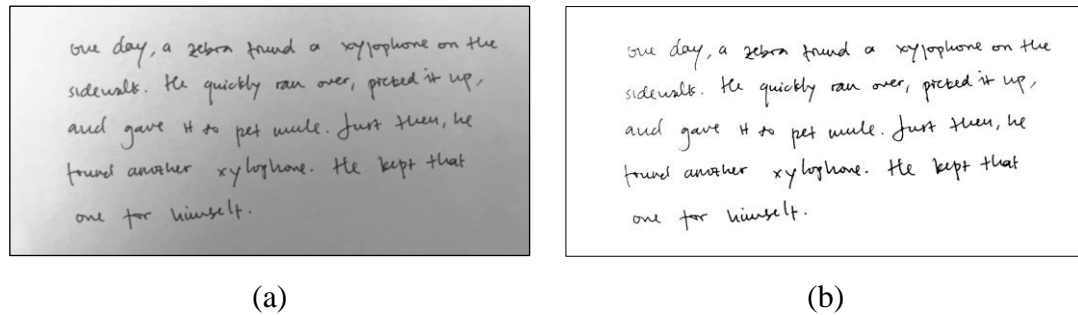 one day, a zebra found a xylophone on the
sidewalk. He quickly ran over, picked it up,
and gave it to pet mule. Just then, he
found another xylophone. He kept that
one for himself.
(a)
one day, a zebra found a xylophone on the
sidewalk. He quickly ran over, picked it up,
and gave it to pet mule. Just then, he
found another xylophone. He kept that
one for himself.
(b)